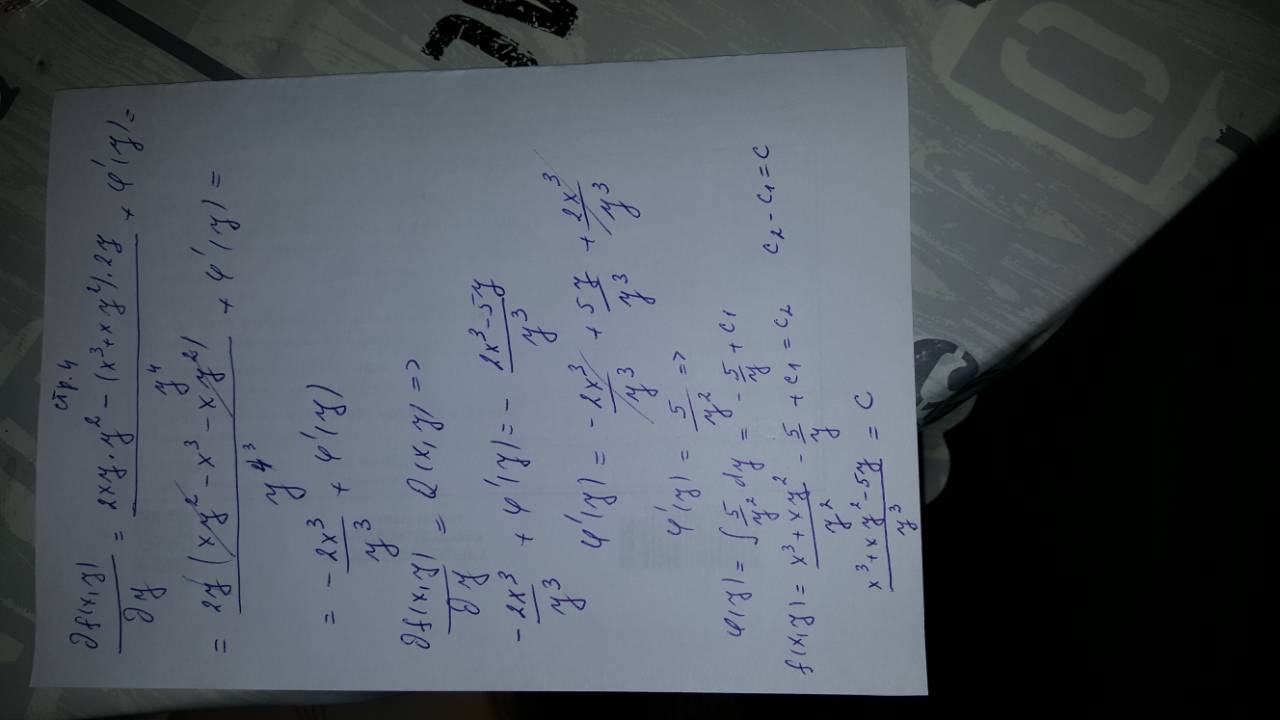 стр. 4
∂f(x,y)/∂y = (2xy·y² − (x³+xy²)·2y)/y⁴ + φ'(y) =
= 2y(xy² − x³ − xy²)/y⁴ ³ + φ'(y) =
= −2x³/y³ + φ'(y)
∂f(x,y)/∂y = Q(x,y) =>
−2x³/y³ + φ'(y) = − (2x³−5y)/y³
φ'(y) = −2x³/y³ + 5y/y³ + 2x³/y³
φ'(y) = 5/y² =>
φ(y) = ∫ 5/y² dy = −5/y + c₁
f(x,y) = (x³+xy²)/y² − 5/y + c₁ = c₂ c₂−c₁=c
(x³+xy²−5y)/y³ = C